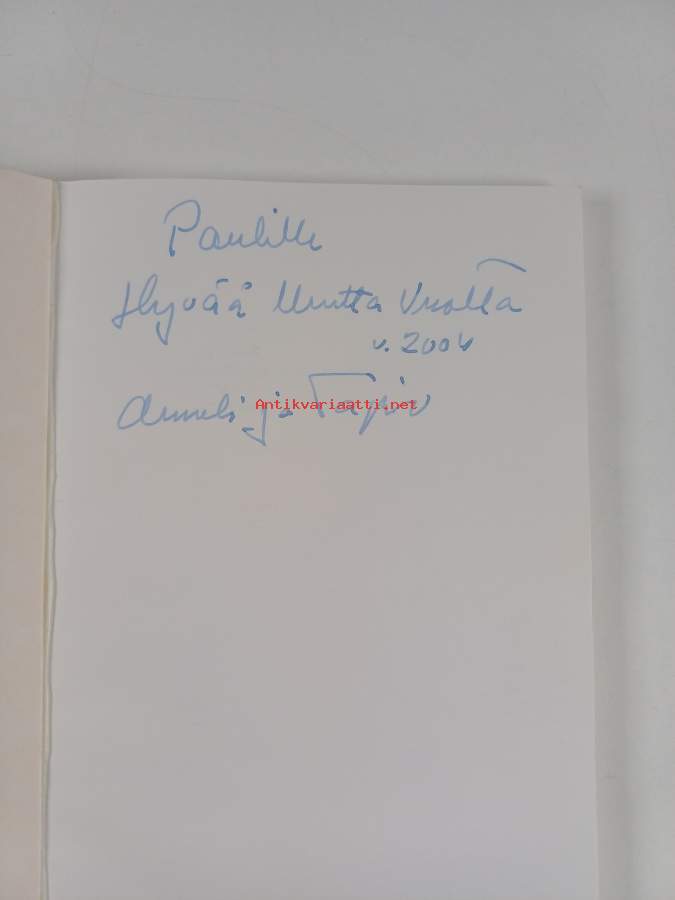 Paulille
Hyvää Uutta Vuotta
v. 2004
Anneli ja Tapio
Antikvariaatti.net